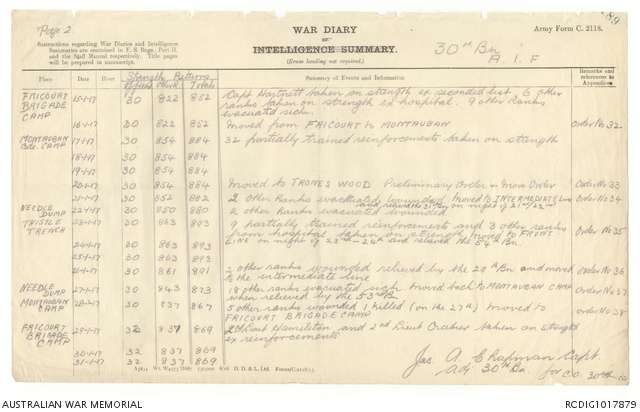 Page 2
Instructions regarding War Diaries and Intelligence
Summaries are contained in F. S. Regs., Part II.
and the Staff Manual respectively. Title pages
will be prepared in manuscript.
WAR DIARY
OR
INTELLIGENCE SUMMARY.
(Erase heading not required.)
30th Bn
A.I.F
Army Form C. 2118.
Place Date Hour Strength Returns Summary of Events and Information Remarks and references to Appendices
Totals
FRICOURT BRIGADE CAMP 15-1-17 30 822 852 Capt Hartnett taken on strength ex seconded list, 6 other
ranks taken on strength ex hospital. 9 other Ranks
evacuated sick.
16-1-17 30 822 852 Moved from FRICOURT to MONTAUBAN Order No 32
MONTAUBAN CAMP 17-1-17 30 854 884 32 partially trained reinforcements taken on strength
18-1-17 30 854 884
19-1-17 30 854 884
20-1-17 30 854 884 Moved to TRONES WOOD Preliminary Order + Move Order Order No 33
21-1-17 30 852 882 2 other Ranks evacuated wounded. Moved to INTERMEDIATE Line Order No 34
and relieved 31st Bn on night of 21st/22nd
NEEDLE DUMP 22-1-17 30 850 880 2 other ranks evacuated wounded
THISTLE TRENCH 23-1-17 30 863 893 9 partially trained reinforcements and 3 other ranks
from hospital taken on strength. Moved to FRONT Order No 35
24-1-17 30 863 893 LINE on night of 23rd-24th and relieved the 54th Bn.
25-1-17 30 863 893
30 861 891 2 other ranks wounded relieved by the 29th Bn and moved Order No 36
to the intermediate line
NEEDLE DUMP 27-1-17 30 843 873 18 other ranks evacuated sick moved back to MONTAUBAN CAMP Order No 37
when relieved by the 53rd Bn
MONTAUBAN CAMP 28-1-17 30 837 867 5 other ranks wounded, 1 killed (on the 27th) moved to Order No 38
FRICOURT BRIGADE CAMP
FRICOURT BRIGADE CAMP 29-1-17 32 837 869 2nd Lieut Hamilton and 2nd Lieut taken on strength
ex reinforcements
30-1-17 32 837 869
31-1-17 32 837 869
Jas. A Chapman Capt
Adj 30th Bn. for C.O. 30th Bn
AUSTRALIAN WAR MEMORIAL
RCDIG1017879